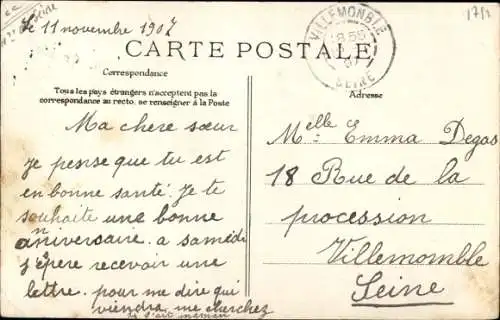 le 11 novembre 1907
CARTE POSTALE
Correspondance
Tous les pays étrangers n'acceptent pas la
correspondance au recto, se renseigner à la Poste
Adresse
VILLEMOMBLE
18 55
SEINE
Ma chere sœur
je pense que tu est
en bonne santé. Je te
souhaite une bonne
anniversaire. a samedi
j'épere recevoir une
lettre. pour me dire qui
viendra me cherchez
si s'est maman
Melle Emma Degas
18 Rue de la
procession
Villemomble
Seine